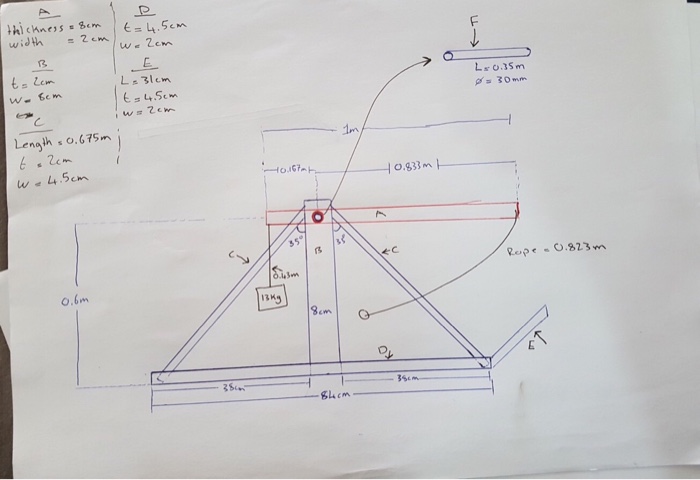 A
thickness = 8cm
width = 2cm
B
t = 2cm
w = 8cm
C
Length = 0.675m
t = 2cm
w = 4.5cm
D
t = 4.5cm
w = 2cm
E
L = 31cm
t = 4.5cm
w = 2cm
F
L = 0.35m
ø = 30mm
1m
0.167m
0.833m
A
35°
B
35
C
C
0.43m
13Kg
Rope = 0.823m
0.6m
8cm
D
E
38cm
38cm
84cm